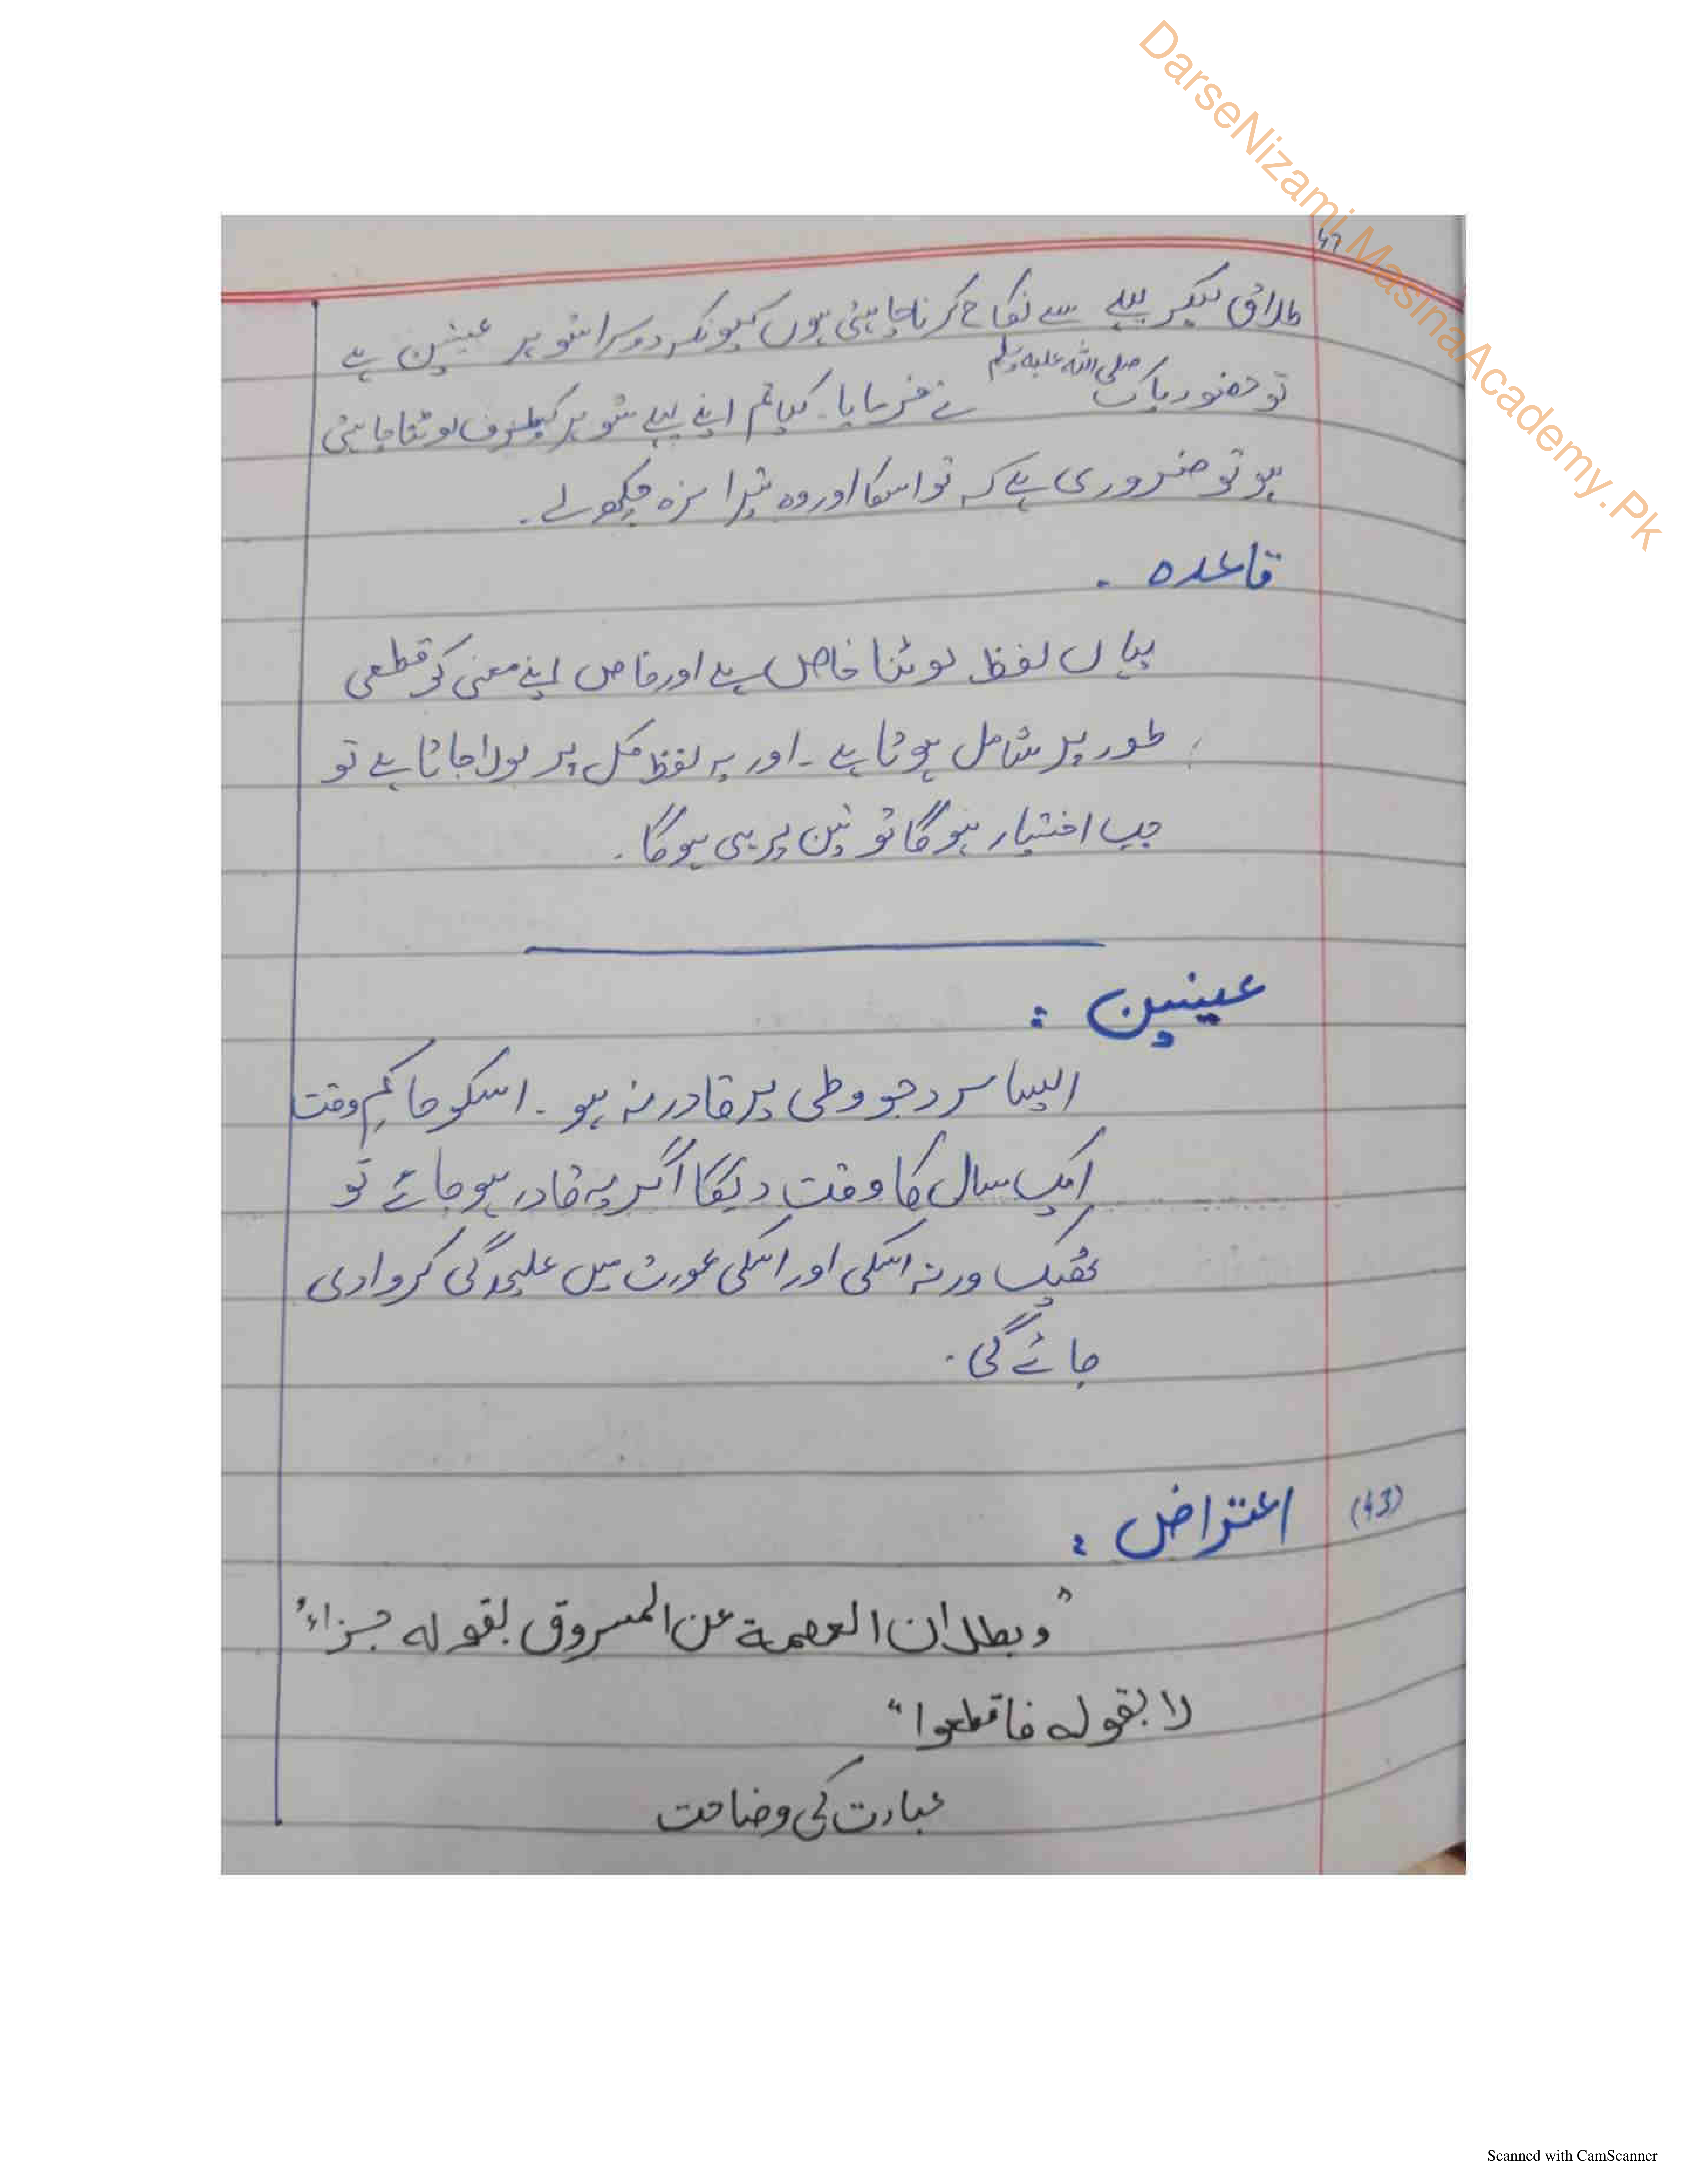 DarseNizami.MasinaAcademy.Pk
47
طلاق لیکر پہلے سے نکاح کرنا چاہتی ہوں کیونکہ دوسرا شوہر عینین ہے
تو حضور پاک صلی اللہ علیہ وسلم نے فرمایا۔ کیا تم اپنے پہلے شوہر کیطرف لوٹنا چاہتی
ہو تو ضروری ہے کہ تو اسکا اور وہ تیرا مزہ چکھ لے۔
قاعدہ ۔
یہاں لفظ لوٹنا خاص ہے اور خاص اپنے معنی کو قطعی
طور پر شامل ہوتا ہے ۔ اور یہ لفظ کل پر بولا جاتا ہے تو
جب اختیار ہوگا تو تین پر ہی ہوگا ۔
عینین :
ایسا مرد جو وطی پر قادر نہ ہو ۔ اسکو حاکم وقت
ایک سال کا وقت دیگا اگر یہ قادر ہو جائے تو
ٹھیک ورنہ اسکی اور اسکی عورت میں علیحدگی کروا دی
جائے گی ۔
(43) اعتراض :
"و بطلان العصمة عن المسروق بقوله جزاء
لا بقوله فاقطعوا"
عبارت کی وضاحت
Scanned with CamScanner